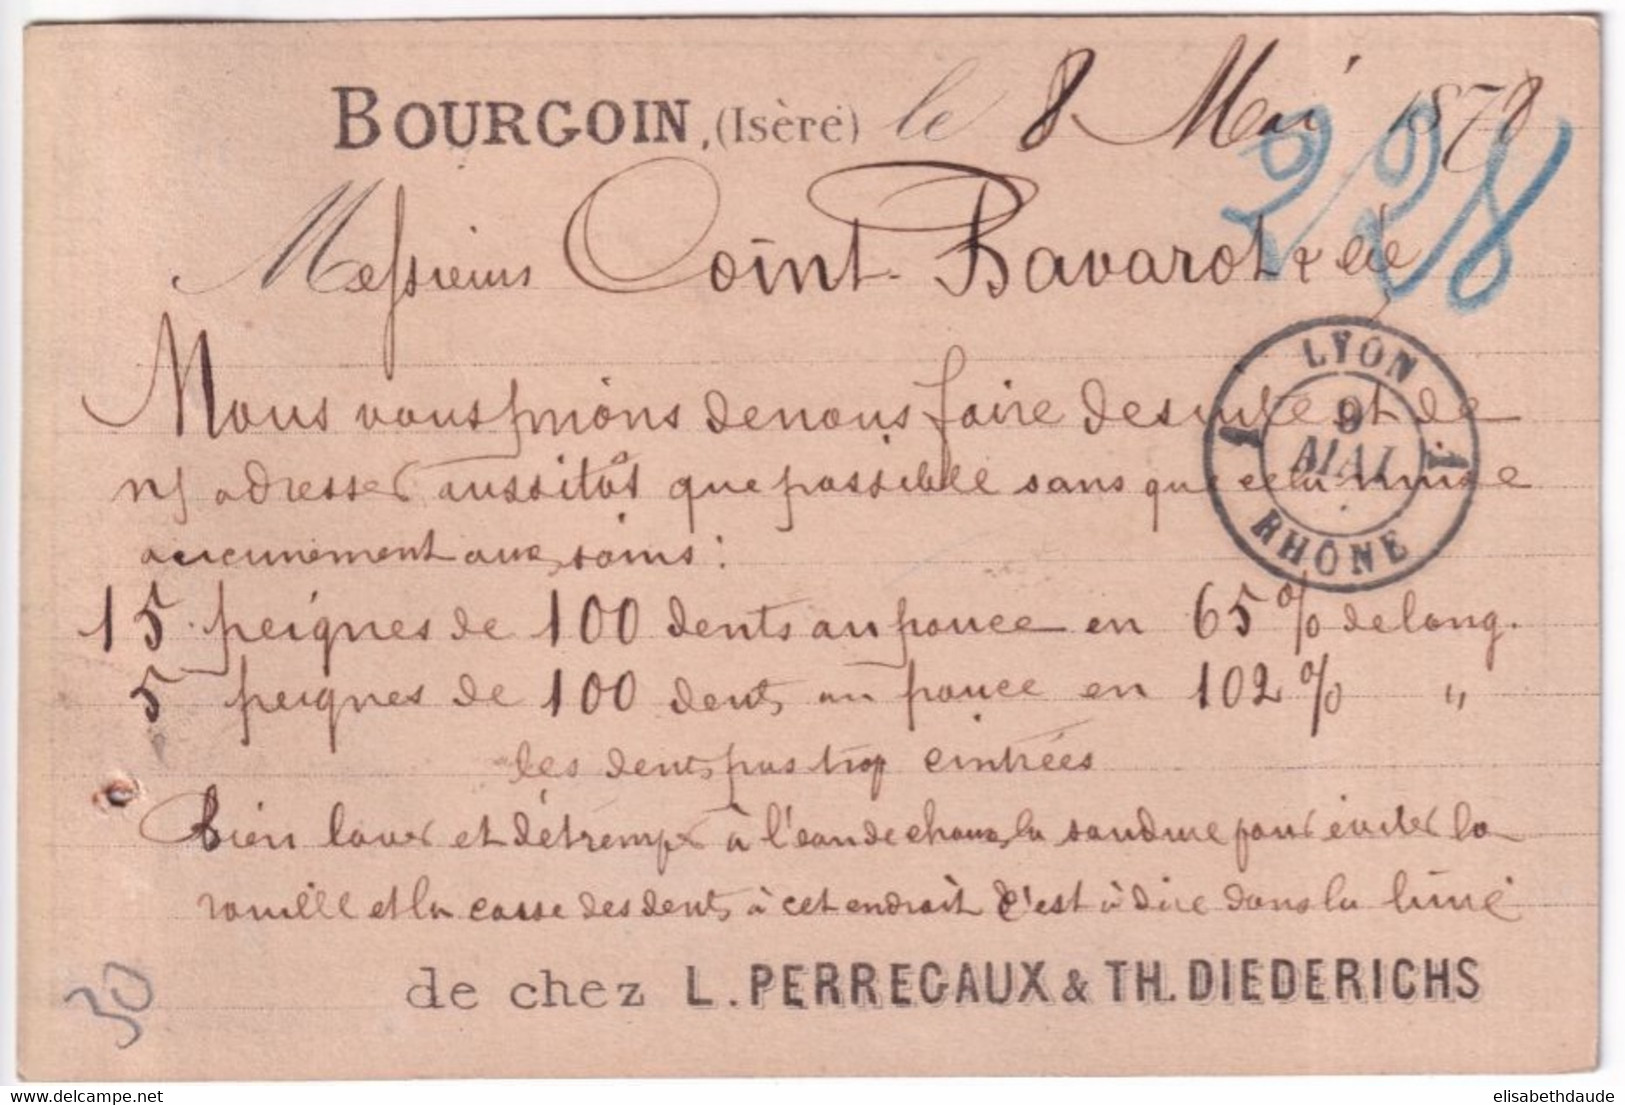 BOURGOIN, (Isère) le 8 Mai 1878
228
Messieurs Coint-Bavarot & Cie
LYON
9
MAI
RHÔNE
Nous vous prions de nous faire de suite et de
n/ adresser aussitôt que possible sans que cela nuise
aucunement aux soins:
15 peignes de 100 dents au pouce en 65 % de long.
5 peignes de 100 dents au pouce en 102 % "
les dents pas trop cintrées
Bien laver et détremper à l'eau de chaux la soudure pour éviter la
rouille et la casse des dents à cet endroit c'est à dire dans la
de chez L. PERREGAUX & TH. DIEDERICHS
30
www.delcampe.net
elisabethdaude